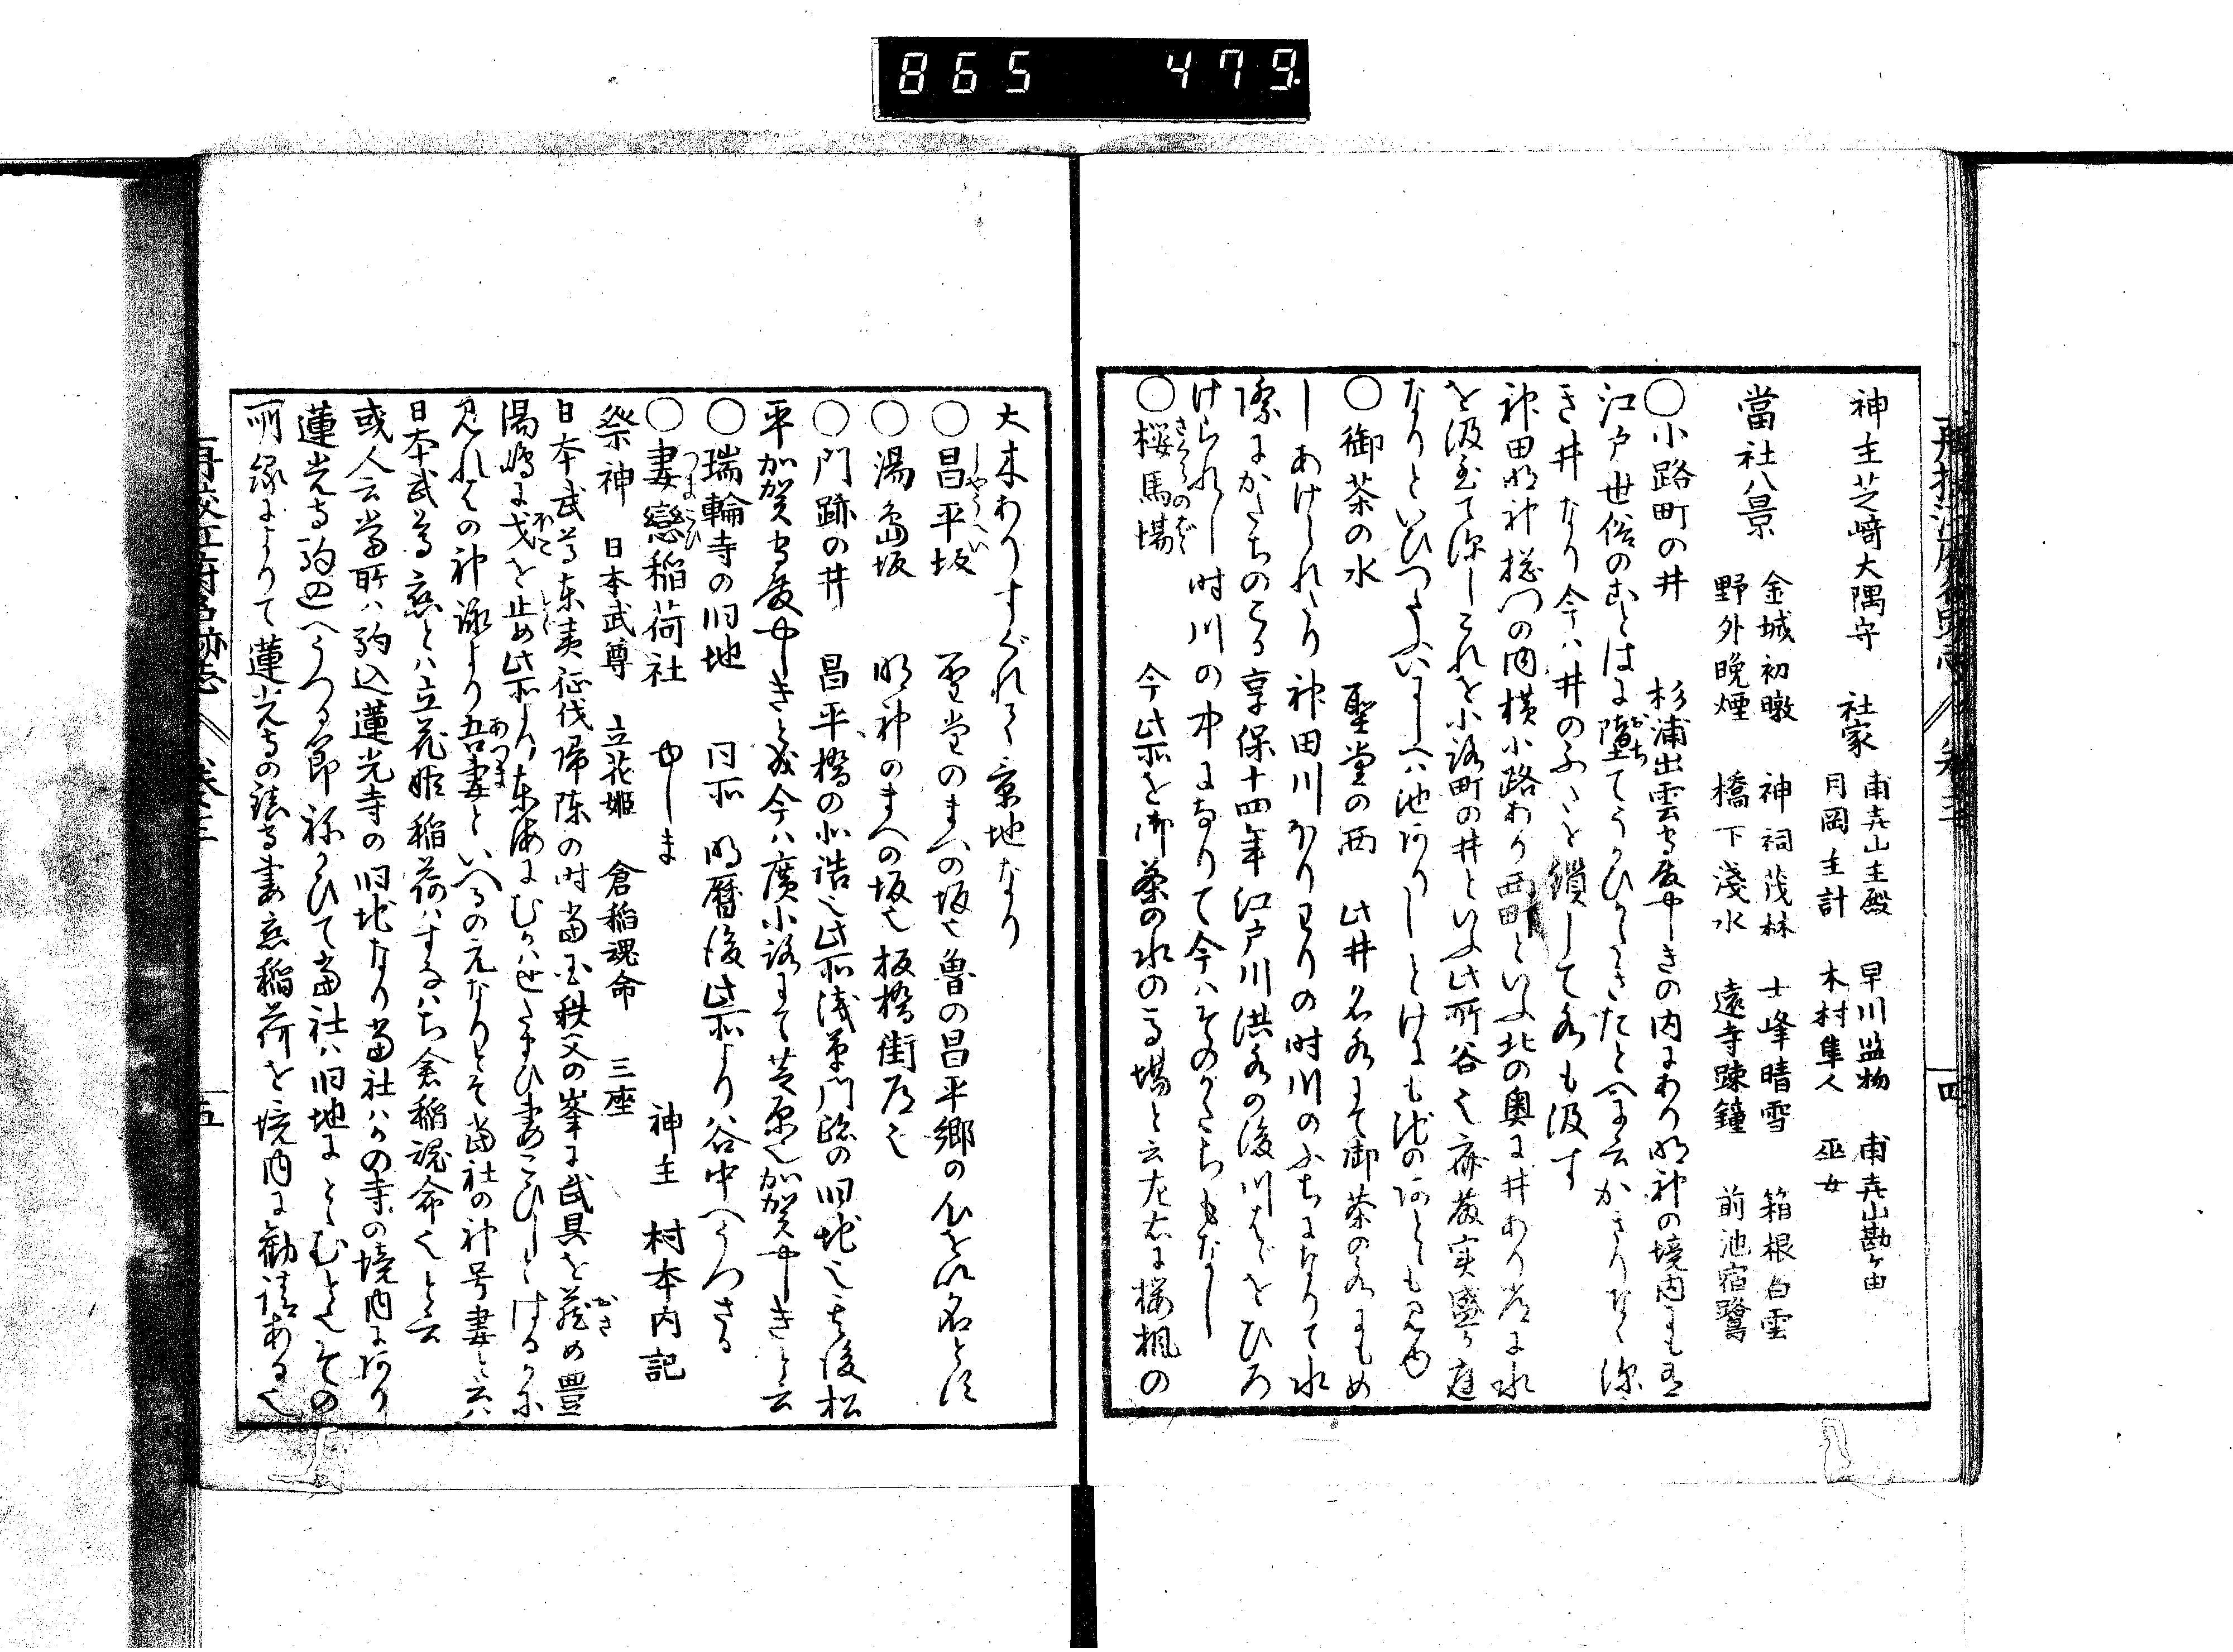 865 479
神主芝﨑大隅守 社家 甫㐂山主殿 早川监物 甫㐂山勘ケ由
月岡主計 木村隼人 巫女
當社八景 金城初暾 神祠茂林 士峰晴雪 箱根白雲
野外晩煙 橋下淺水 遠寺疎鐘 前池宿鷺
〇小路町の井 杉浦出雲守殿やしきの内にあり明神の境内にも有
江戸世俗のことはに
き井なり今ハ井のふたを鎖して水も汲す
神田明神惣門の内横小路あり西町といふ北の奥に井あり常に水
を汲至て深しこれを小路町の井といふ此所谷也斎藤実盛か庭
なりといひつたふいにしへハ池ありしとけにも池のあとも見ゆ
〇御茶の水 聖堂の西 此井名水にて御茶の水にもめ
しあけられたり神田川ほりわりの時川のふちになりて水
際にかたちのこる享保十四年江戸川洪水の後川はゞをひろ
けられし時川の中になりて今ハそのかたちもなし
〇桜馬場 今此所を御茶の水の馬場と云左右に桜楓の
さくらのばゞ
大木ありすぐれて景地なり
〇昌平坂 聖堂のまへの坂也魯の昌平郷の
しやうへい
〇湯島坂 明神のまへの坂也板橋街道也
〇門跡の井 昌平橋の北詰也此所浅草門跡の旧地也其後松
平加賀守殿やしきと成今ハ廣小路にて芝原也加賀やしきと云
〇瑞輪寺の旧地 同所 明暦後此所より谷中へうつさる
〇妻戀稲荷社 ゆしま 神主 村本内記
つまこひ
祭神 日本武尊 立花姫 倉稲魂命 三座
日本武尊東夷征伐帰陣の時當国秩父の峯に武具を蔵め豊
湯嶋に戈を止め此所より東海にむかハせたまひ妻こひしとける
见れ 吾妻といへるの元なりとそ當社の神号妻と云ハ
あつま
日本武尊恋とハ立花姫稲荷ハすなハち倉稲魂命也と云
或人云當所ハ駒込蓮光寺の旧地なり當社ハかの寺の境内にあり
蓮光寺駒込へうつる節 當社ハ旧地にとゝむ その
所縁によりて蓮光寺の 妻恋稲荷を境内に勧請ある也
再校江府名跡志 巻之三 四
再校江府名跡志 巻之三 五